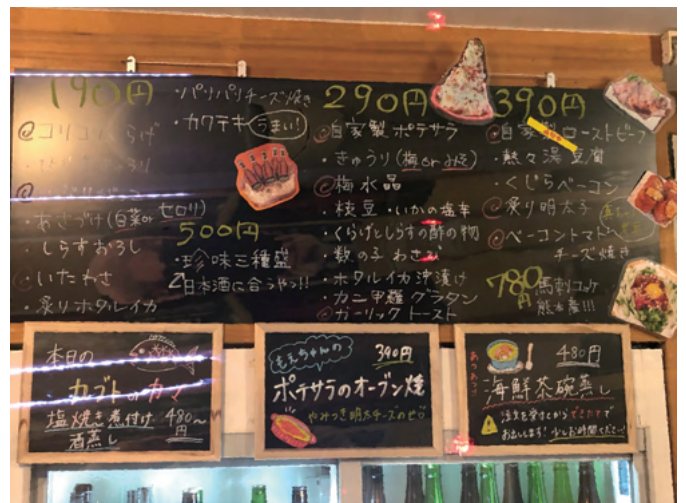 190円
・パリパリチーズ焼き
・カクテキ うまい!
コリコリくらげ
・あさづけ(白菜orセロリ)
・しらすおろし
・いたわさ
・炙りホタルイカ
500円
・珍味三種盛
日本酒に合うやつ!!
290円
自家製ポテサラ
・きゅうり(梅orみそ)
梅水晶
・枝豆・いかの塩辛
・くらげとしらすの酢の物
・数の子わさび
・ホタルイカ沖漬け
・カニ甲羅グラタン
ガーリックトースト
390円
自家製ローストビーフ
・熱々湯豆腐
・くじらベーコン
炙り明太子
ベーコントマト
チーズ焼き
780円
馬刺ユッケ
熊本産!!!
本日の
カブトorカマ
塩焼き 煮付け
酒蒸し
480〜円
もえちゃんの
390円
ポテサラのオーブン焼
やみつき明太チーズ
あつあつ!
480円
海鮮茶碗蒸し
注文を受けてからできたてで
お出しします!少しお時間ください!